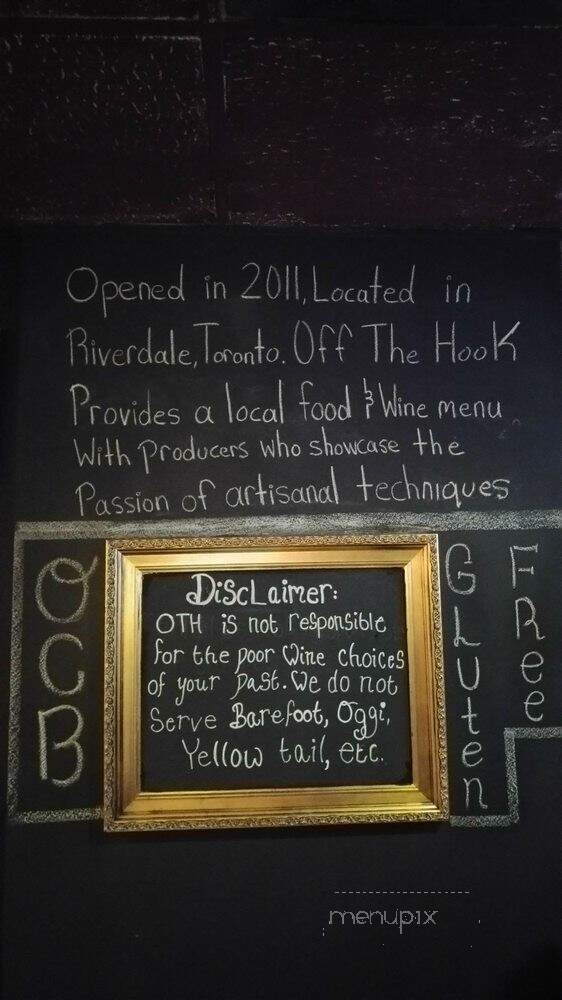 Opened in 2011, Located in
Riverdale, Toronto. Off The Hook
Provides a local food & Wine menu
With Producers who showcase the
Passion of artisanal techniques
OCB
Disclaimer:
OTH is not responsible
for the poor Wine choices
of your past. We do not
Serve Barefoot, Oggi,
Yellow tail, etc.
Gluten
Free
menupix